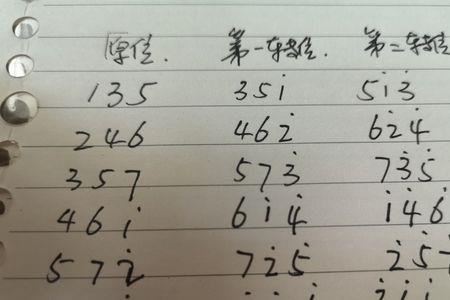 原位. 第一转位. 第二转位
135 351̇ 51̇3̇
246 462̇ 62̇4̇
357 573̇ 73̇5̇
461̇ 61̇4̇ 1̇4̇6̇
572̇ 72̇5̇ 2̇5̇